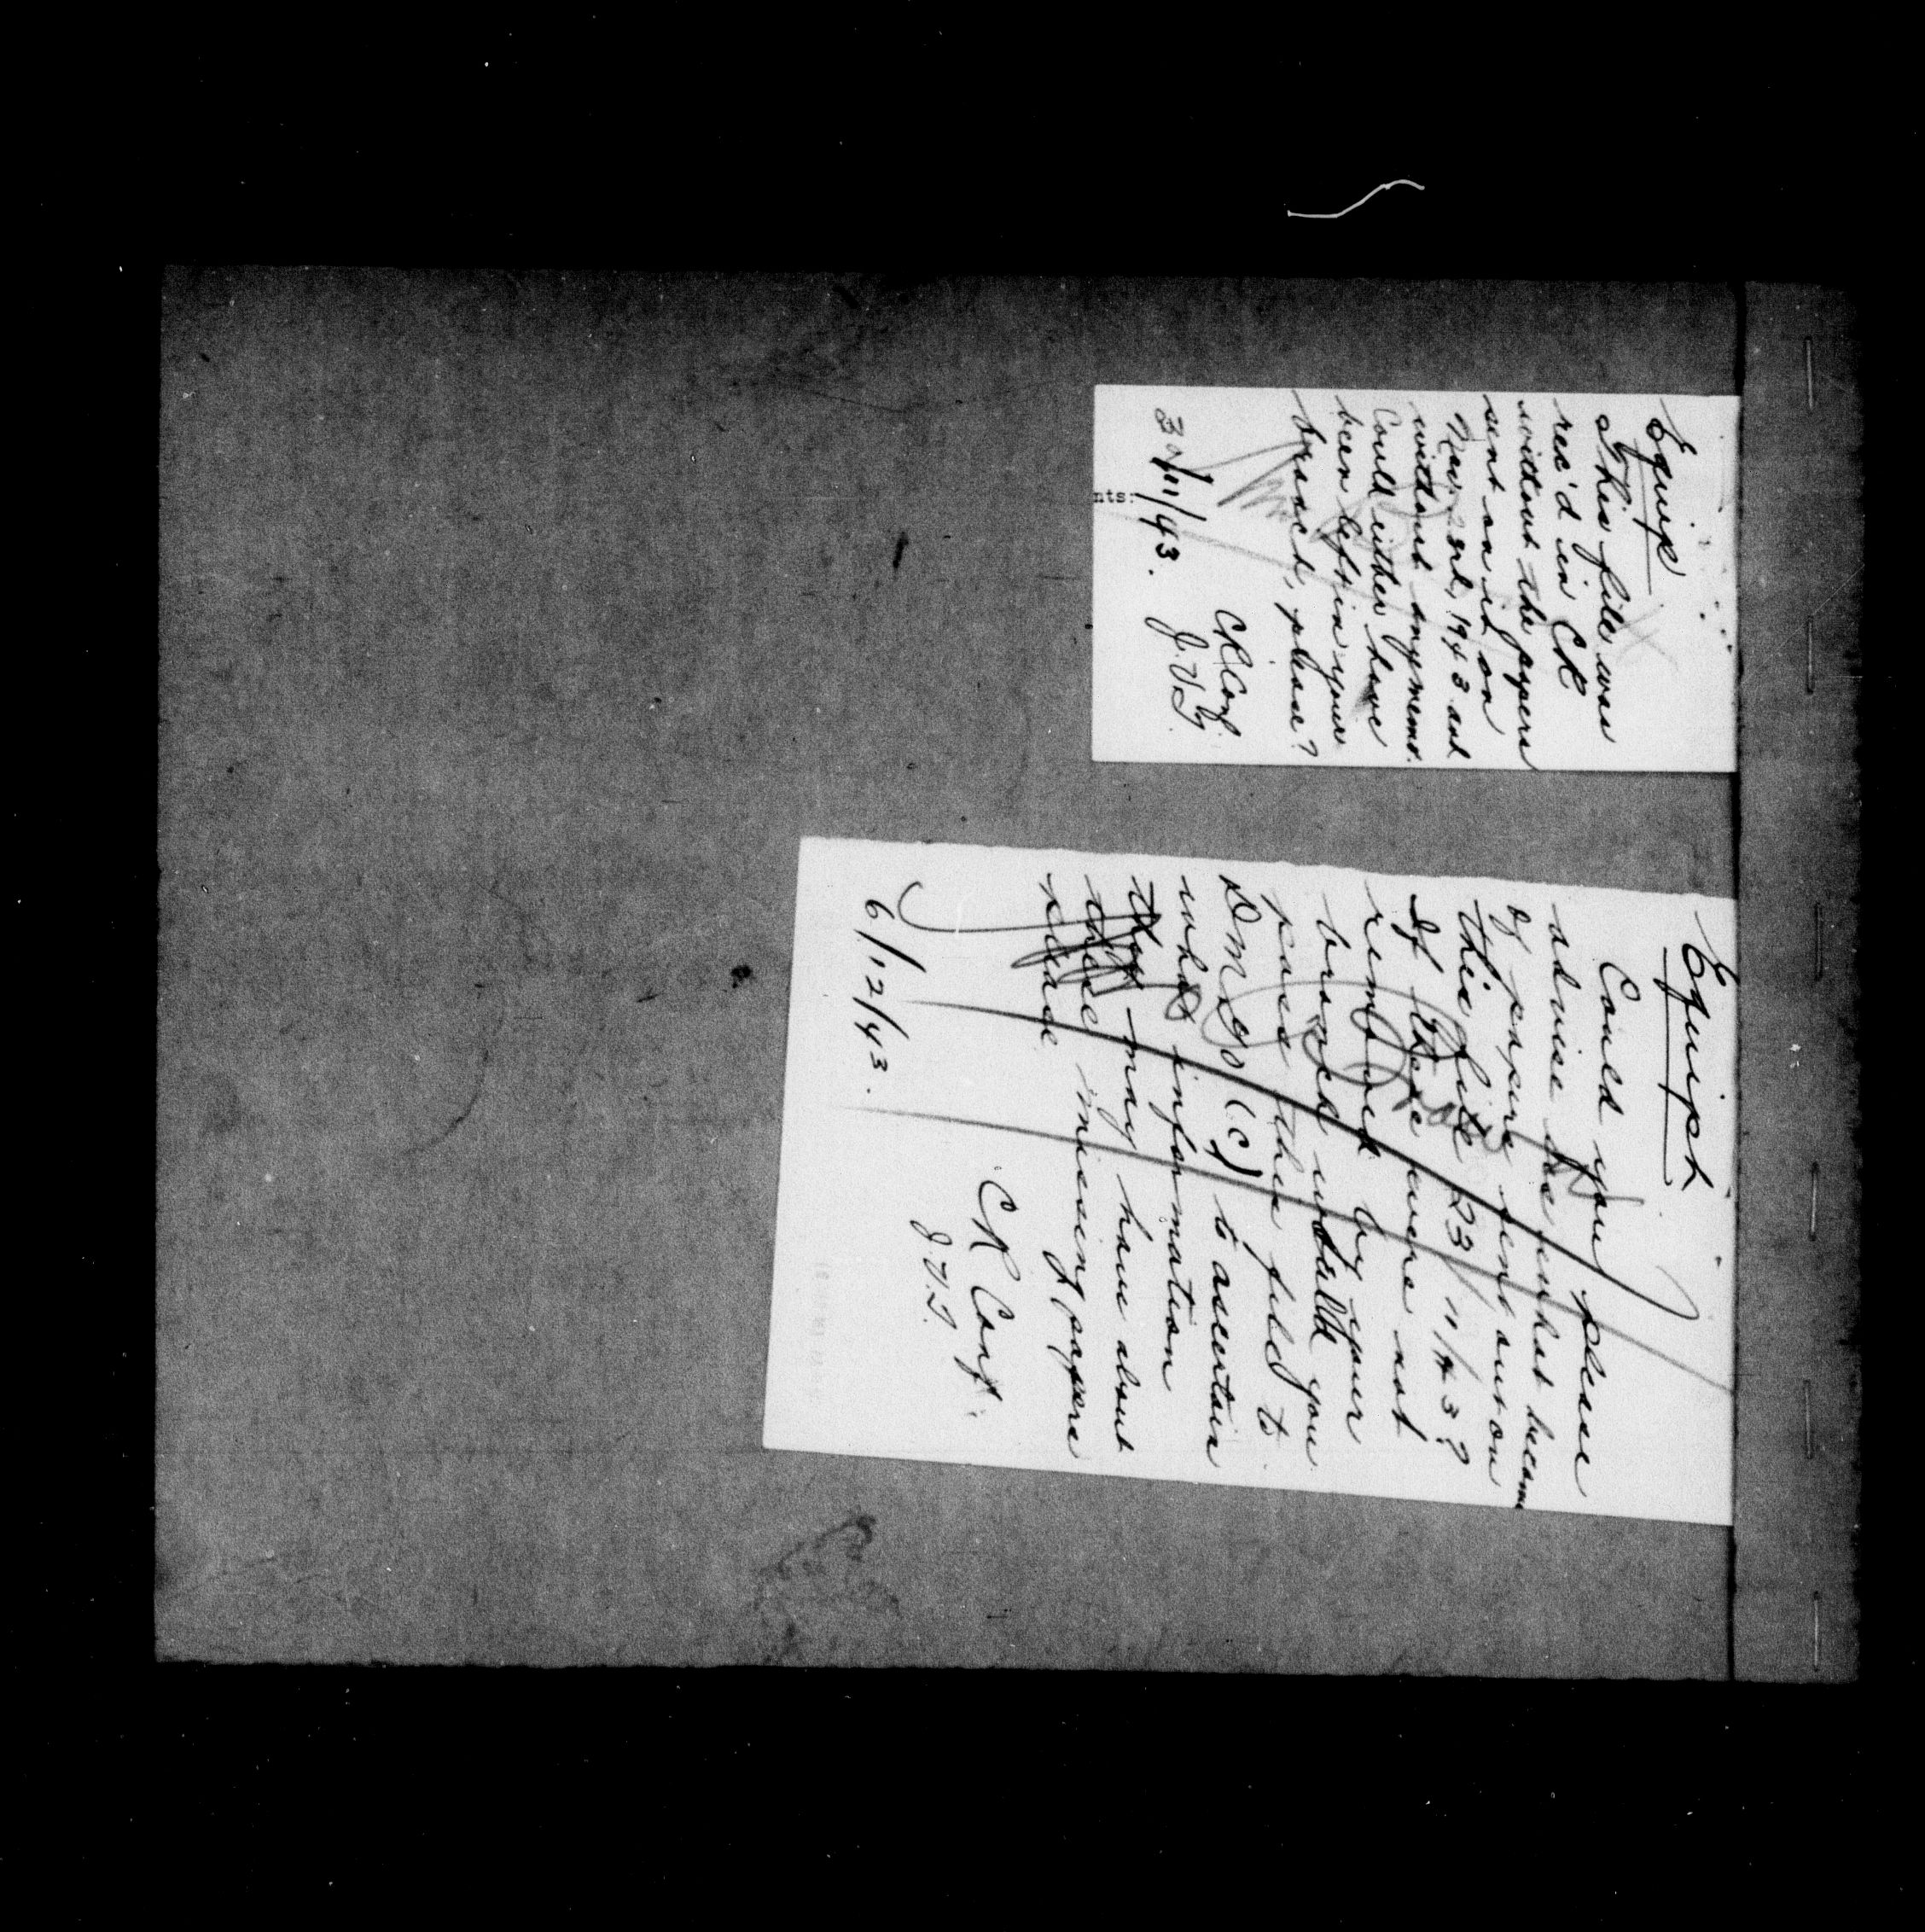 Equip
This file was
rec'd in CR
without the papers
sent on it on
Nov. 23rd, 1943 and
without any memo.
Could either have
been left in your
branch, please?
CR Conf
30/11/43.
nts:
Equipt
Could you please
advise as what became
of papers sent out on
this file 23/11/43?
If these were not
removed by your
branch would you
pass this file to
to ascertain
what information
they may have about
these missing papers
please
CR Conf.
6/12/43.